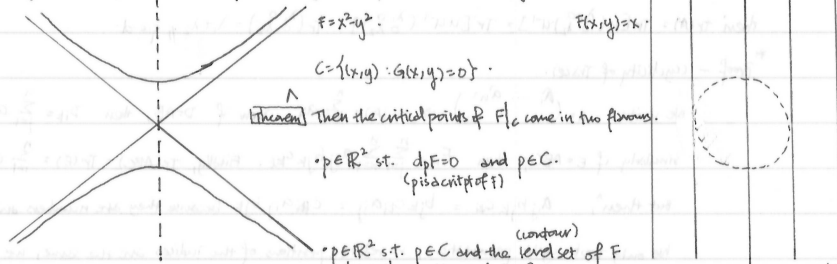 F=x²-y².
F(x,y)=x.
C={(x,y) : G(x,y)=0}.
Theorem Then the critical points of F|_C come in two flavours.
• p∈ℝ² s.t. d_pF=0 and p∈C.
(p is a crit pt of F)
(contour)
• p∈ℝ² s.t. p∈C and the level set of F